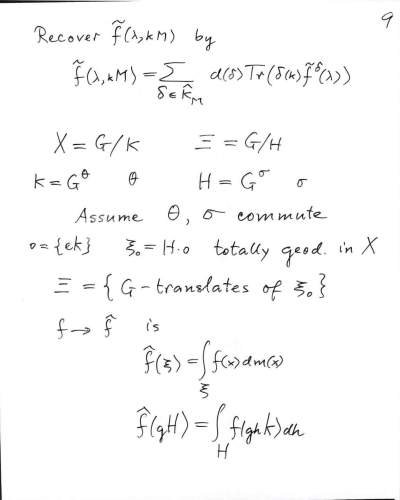 9
Recover f̃(λ, kM) by
f̃(λ, kM) = Σ_{δ∈K̂_M} d(δ)Tr(δ(k)f̃^δ(λ))
X = G/K Ξ = G/H
K = G^θ θ H = G^σ σ
Assume θ, σ commute
o = {eK} ξ₀ = H·o totally geod. in X
Ξ = {G-translates of ξ₀}
f → f̂ is
f̂(ξ) = ∫_ξ f(x)dm(x)
f̂(gH) = ∫_H f(ghK)dh